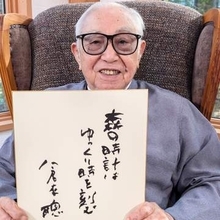 森の時計は
ゆっくり時を刻む
倉本聰